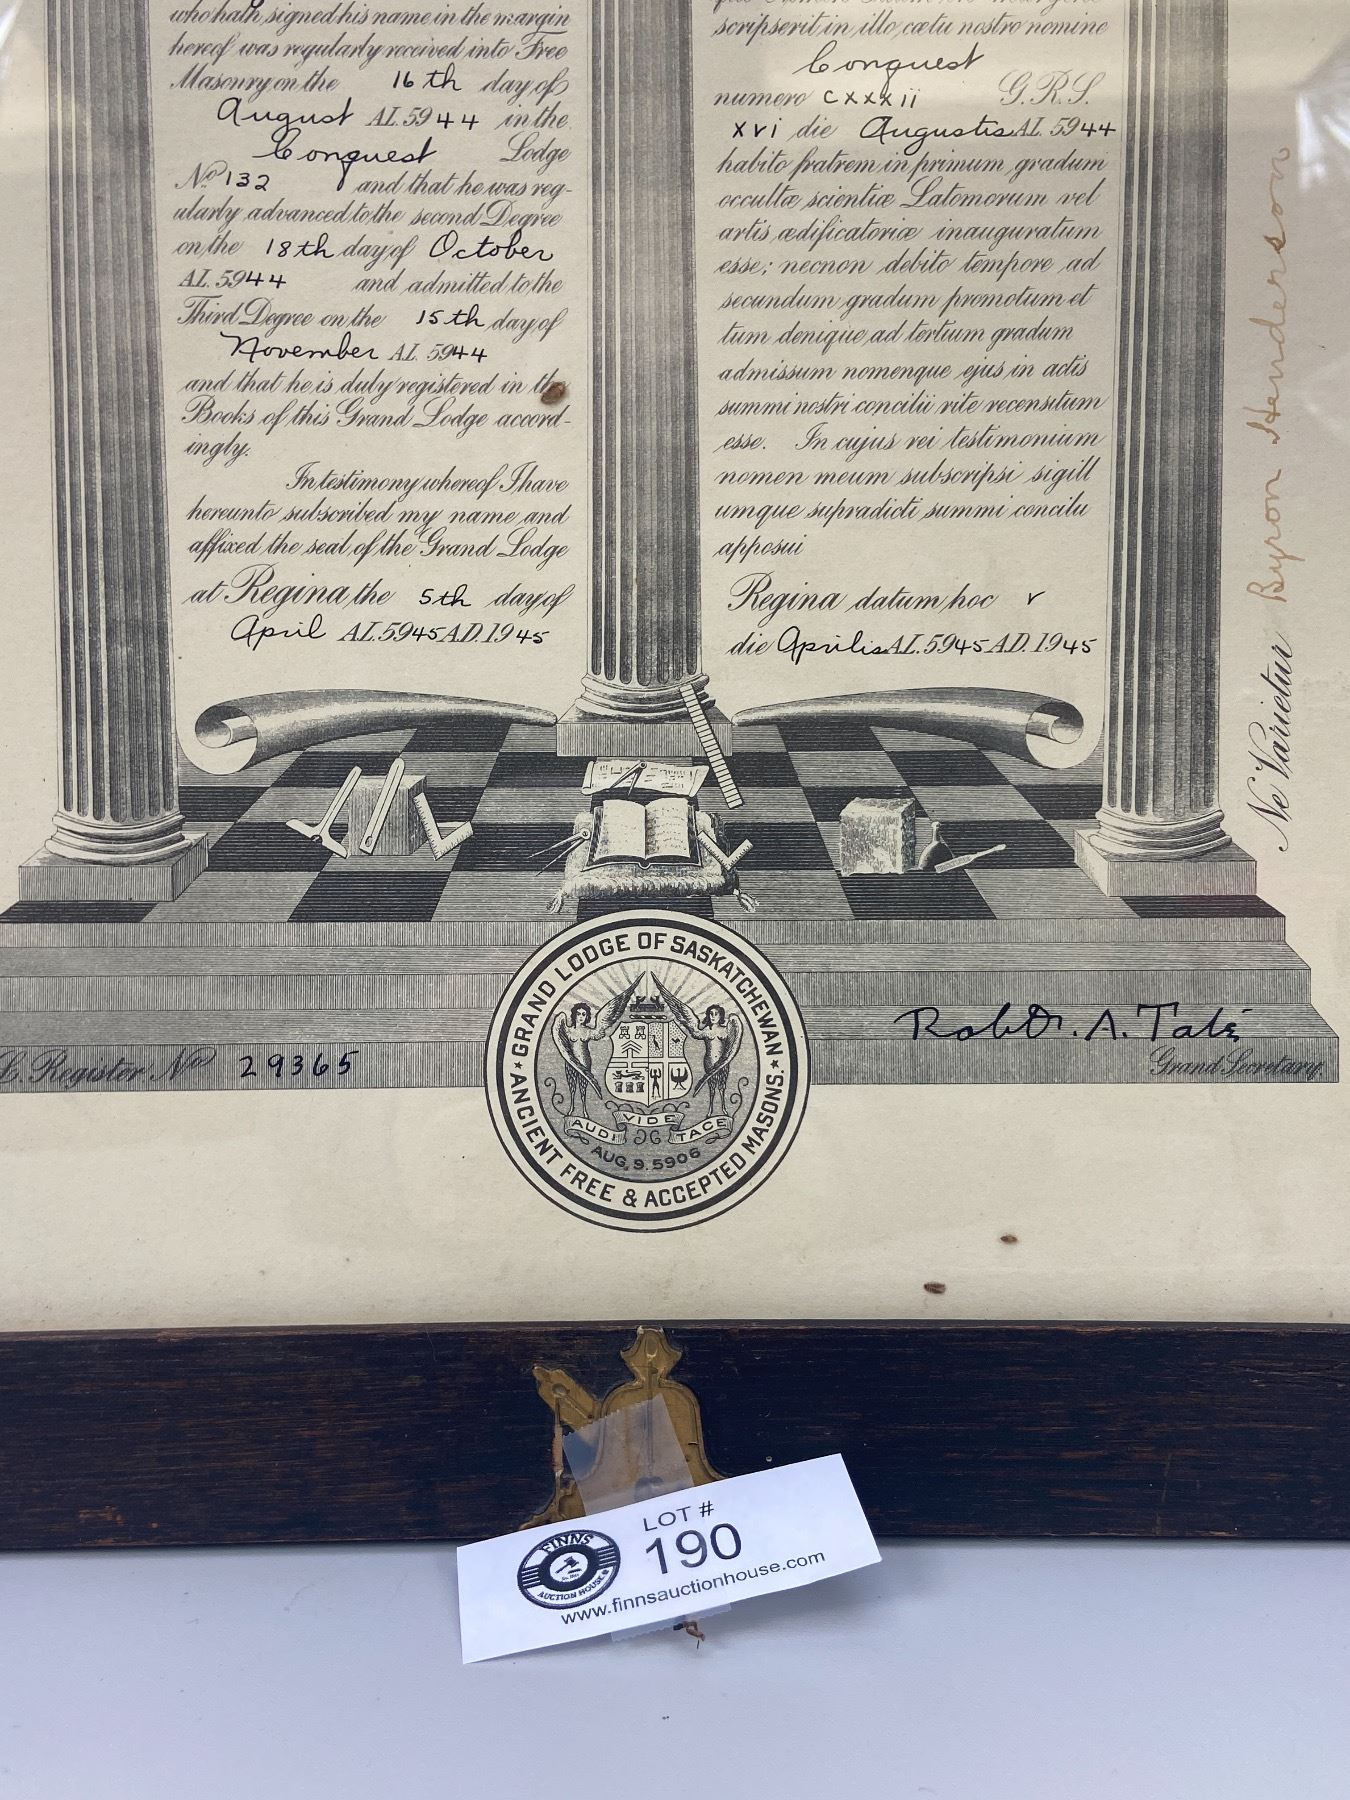 who hath signed his name in the margin
hereof was regularly received into Free
Masonry on the 16th day of
August AL. 5944 in the
Conquest Lodge
No. 132 and that he was reg-
ularly advanced to the second Degree
on the 18th day of October
AL. 5944 and admitted to the
Third Degree on the 15th day of
November AL. 5944
and that he is duly registered in the
Books of this Grand Lodge accord-
ingly.
In testimony whereof I have
hereunto subscribed my name and
affixed the seal of the Grand Lodge
at Regina the 5th day of
April AL. 5945 A.D. 1945
scripserit in illo cætu nostro nomine
Conquest
numero cxxxii G.R.S.
xvi die Augustis AL. 5944
habito fratrem in primum gradum
occultæ scientiæ Latomorum vel
artis ædificatoriæ inauguratum
esse; necnon debito tempore ad
secundum gradum promotum et
tum denique ad tertium gradum
admissum nomenque ejus in actis
summi nostri concilii rite recensitum
esse. In cujus rei testimonium
nomen meum subscripsi sigill
umque supradicti summi concilii
apposui
Regina datum hoc v
die Aprilis AL. 5945 A.D. 1945
Ne Varietur Byron Henderson
GRAND LODGE OF SASKATCHEWAN
ANCIENT FREE & ACCEPTED MASONS.
AUDI VIDE TACE
AUG. 9. 5906
L. Register No 29365
Robt. A. Tate
Grand Secretary.
LOT #
190
FINNS
AUCTION HOUSE
www.finnsauctionhouse.com